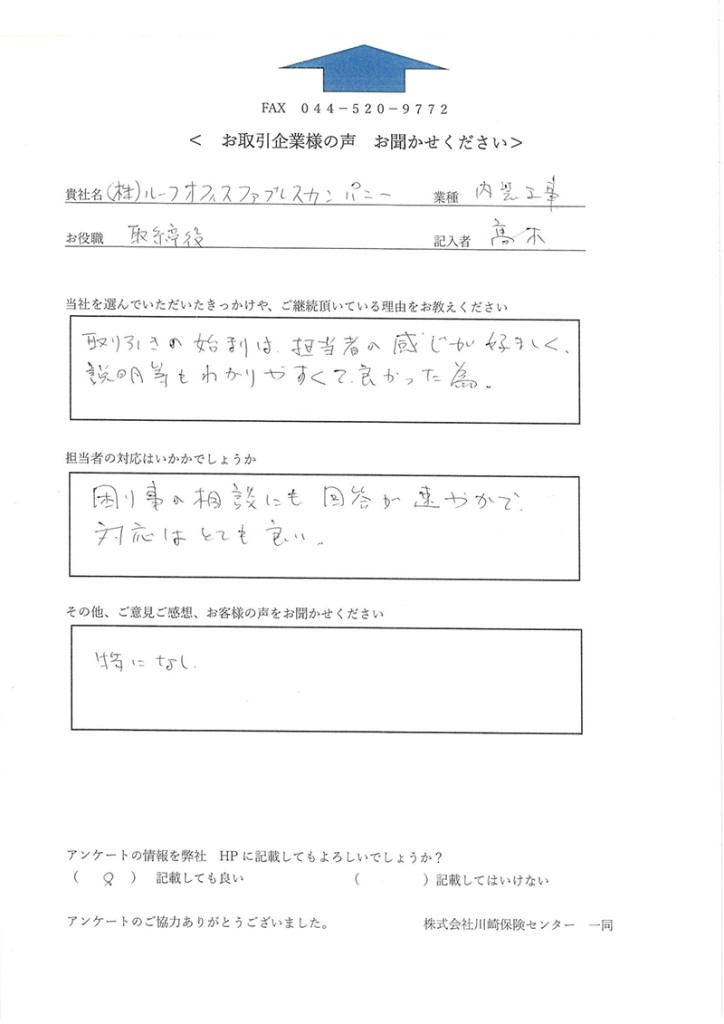 FAX 044-520-9772
< お取引企業様の声 お聞かせください>
貴社名 (株)ルーフオフィスファブレスカンパニー 業種 内装工事
お役職 取締役 記入者 髙木
当社を選んでいただいたきっかけや、ご継続頂いている理由をお教えください
取り引きの始まりは、担当者の感じが好ましく、
説明等もわかりやすくて、良かった為。
担当者の対応はいかかでしょうか
困り事の相談にも回答が速やかで、
対応はとても良い。
その他、ご意見ご感想、お客様の声をお聞かせください
特になし、
アンケートの情報を弊社 HPに記載してもよろしいでしょうか?
( ○ ) 記載しても良い ( )記載してはいけない
アンケートのご協力ありがとうございました。 株式会社川崎保険センター 一同